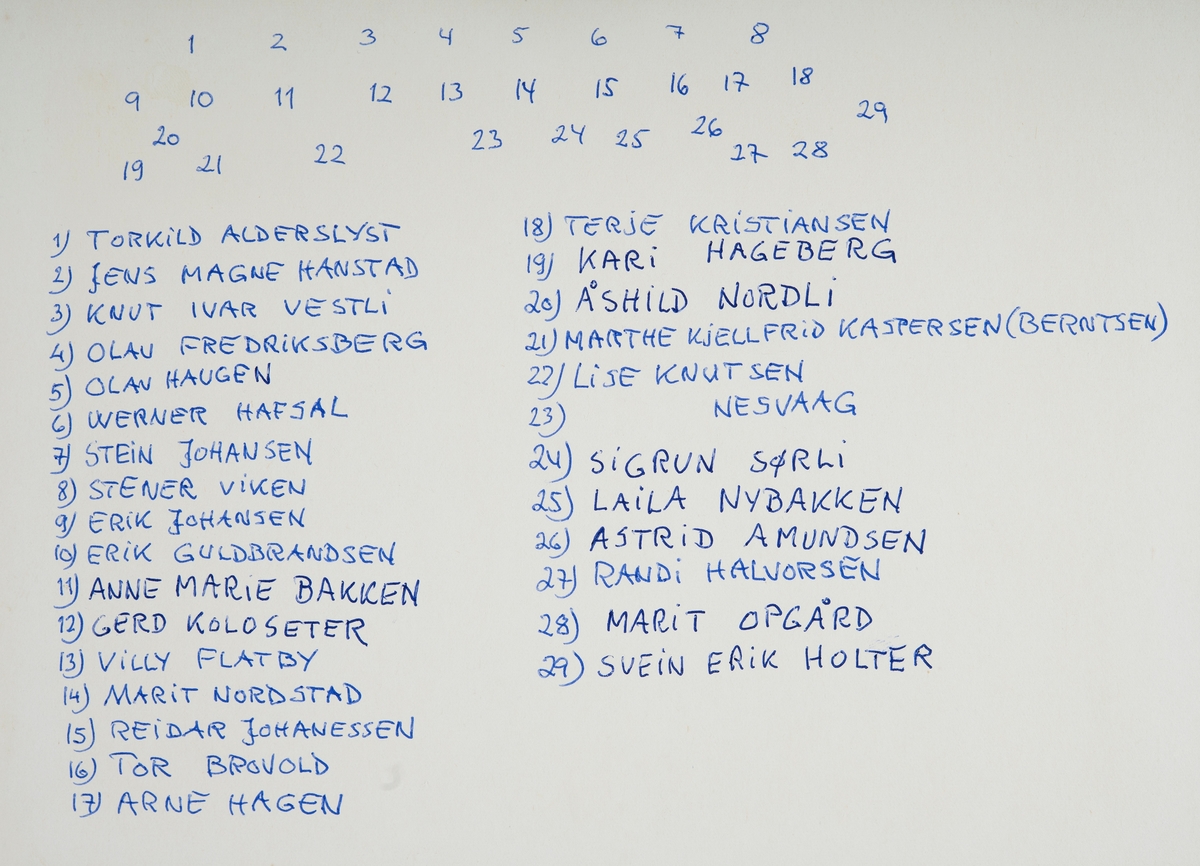 1 2 3 4 5 6 7 8
9 10 11 12 13 14 15 16 17 18
29
19 20 21 22 23 24 25 26 27 28
1) TORKILD ALDERSLYST
2) JENS MAGNE HANSTAD
3) KNUT IVAR VESTLI
4) OLAV FREDRIKSBERG
5) OLAV HAUGEN
6) WERNER HAFSAL
7) STEIN JOHANSEN
8) STENER VIKEN
9) ERIK JOHANSEN
10) ERIK GULDBRANDSEN
11) ANNE MARIE BAKKEN
12) GERD KOLOSETER
13) VILLY FLATBY
14) MARIT NORDSTAD
15) REIDAR JOHANESSEN
16) TOR BROVOLD
17) ARNE HAGEN
18) TERJE KRISTIANSEN
19) KARI HAGEBERG
20) ÅSHILD NORDLI
21) MARTHE KJELLFRID KASPERSEN (BERNTSEN)
22) LISE KNUTSEN
23) NESVAAG
24) SIGRUN SØRLI
25) LAILA NYBAKKEN
26) ASTRID AMUNDSEN
27) RANDI HALVORSEN
28) MARIT OPGÅRD
29) SVEIN ERIK HOLTER